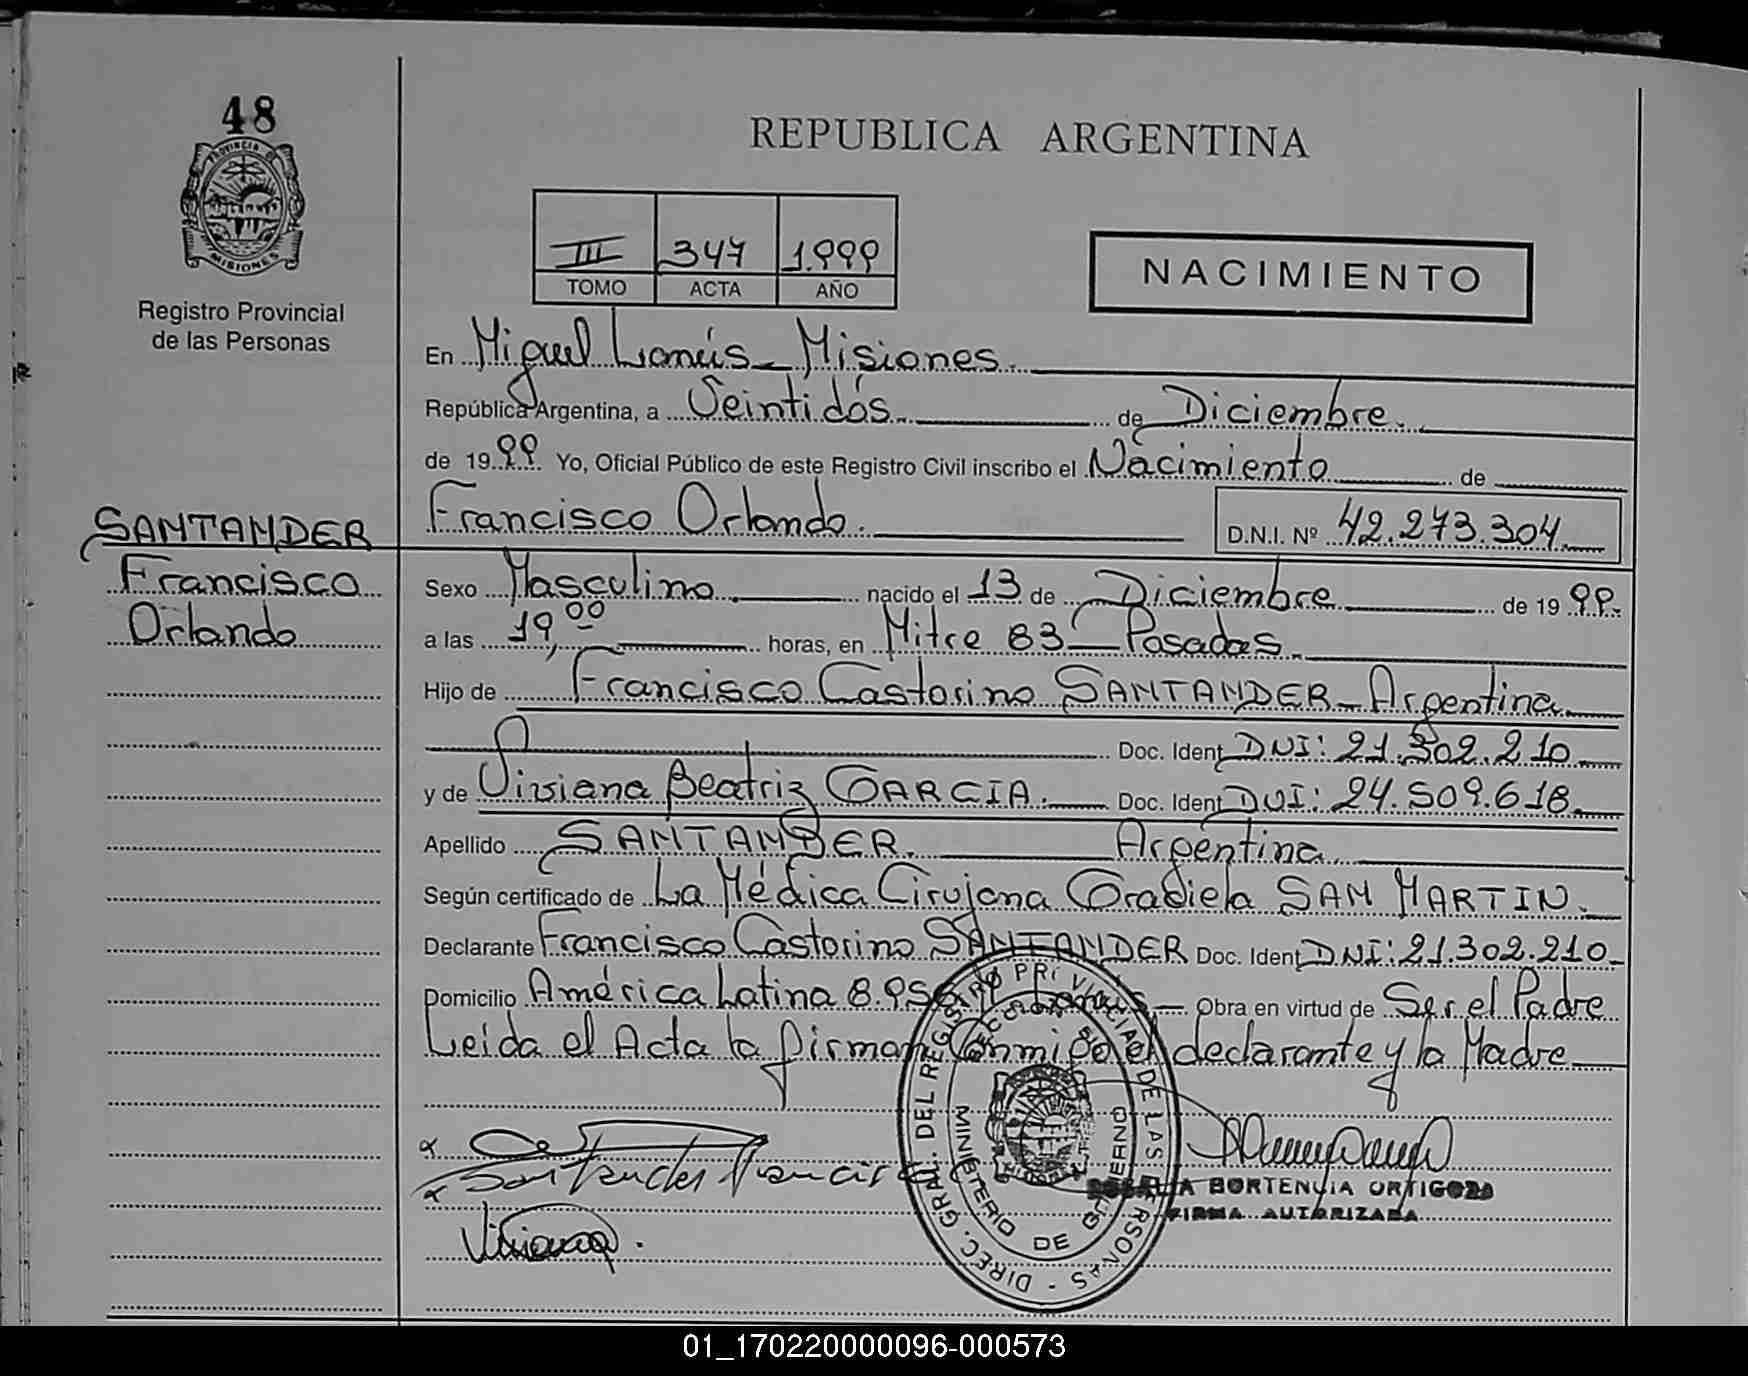 48
PROVINCIA DE
MISIONES
Registro Provincial
de las Personas
SANTANDER
Francisco
Orlando
REPUBLICA ARGENTINA
III 347 1.999
TOMO ACTA AÑO
NACIMIENTO
En Miguel Lanús - Misiones.
República Argentina, a Veintidós de Diciembre.
de 1999. Yo, Oficial Público de este Registro Civil inscribo el Nacimiento de
Francisco Orlando. D.N.I. Nº 42.273.304.
Sexo Masculino. nacido el 13 de Diciembre de 1999.
a las 19,00 horas, en Mitre 83 - Posadas.
Hijo de Francisco Castorino SANTANDER - Argentina.
Doc. Ident DNI: 21.302.210
y de Viviana Beatriz GARCIA. Doc. Ident DNI: 24.509.618.
Apellido SANTANDER. Argentina
Según certificado de La Médica Cirujana Graciela SAN MARTIN.
Declarante Francisco Castorino SANTANDER Doc. Ident DNI: 21.302.210
Domicilio América Latina Lanús - Obra en virtud de Ser el Padre
Leida el Acta la firman Conmigo el declarante y la Madre
Santander Francisco
Viviana
DIREC. GRAL. DEL REGISTRO PROVINCIAL DE LAS PERSONAS
MINISTERIO DE GOBIERNO
HORTENCIA ORTIGOZA
FIRMA AUTORIZADA
01_170220000096-000573